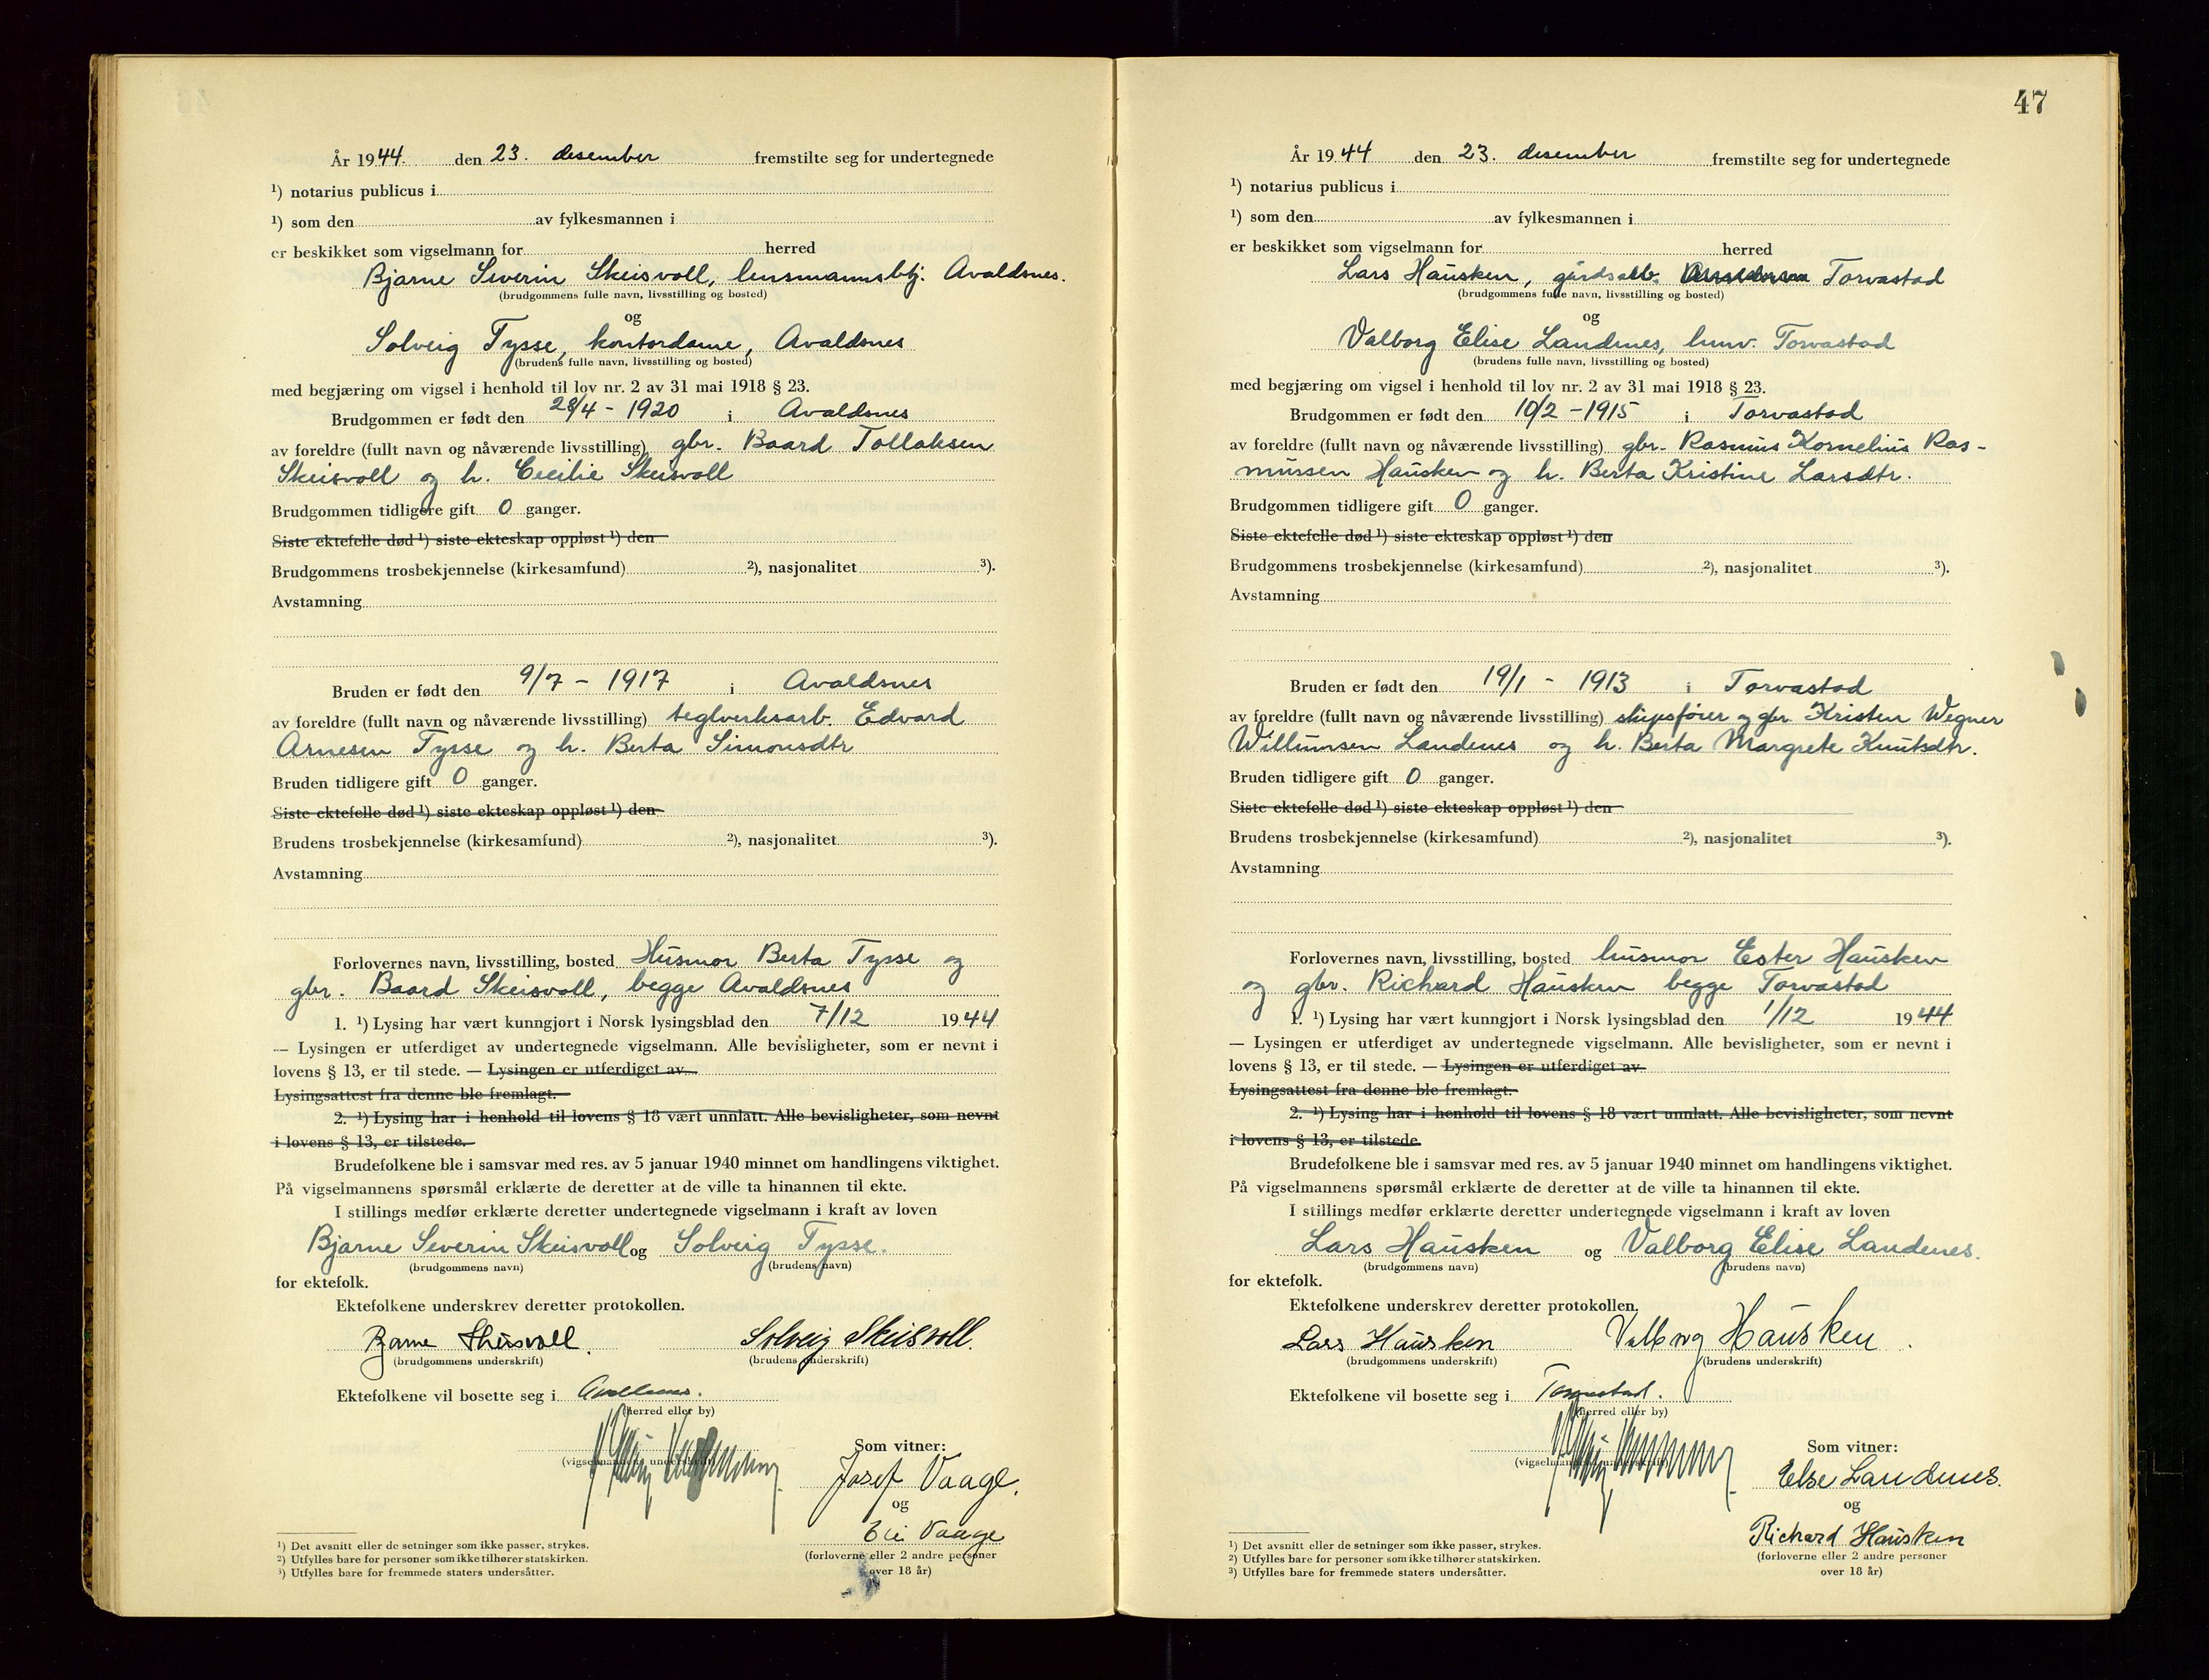 År 1944. den 23. desember fremstilte seg for undertegnede
¹) notarius publicus i
¹) som den av fylkesmannen i
er beskikket som vigselmann for herred
Bjarne Severin Skeisvoll, lensmannsbtj. Avaldsnes.
(brudgommens fulle navn, livsstilling og bosted)
og
Solveig Tysse, kontordame, Avaldsnes
(brudens fulle navn, livsstilling og bosted)
med begjæring om vigsel i henhold til lov nr. 2 av 31 mai 1918 § 23.
Brudgommen er født den 28/4 - 1920 i Avaldsnes
av foreldre (fullt navn og nåværende livsstilling) gbr. Baard Tollaksen
Skeisvoll og h. Cecilie Skeisvoll
Brudgommen tidligere gift 0 ganger.
Siste ektefelle død ¹) siste ekteskap oppløst ¹) den
Brudgommens trosbekjennelse (kirkesamfund) ²), nasjonalitet ³).
Avstamning
Bruden er født den 9/7 - 1917 i Avaldsnes
av foreldre (fullt navn og nåværende livsstilling) teglverksarb. Edvard
Arnesen Tysse og h. Berta Simonsdtr
Bruden tidligere gift 0 ganger.
Siste ektefelle død ¹) siste ekteskap oppløst ¹) den
Brudens trosbekjennelse (kirkesamfund) ²), nasjonalitet ³).
Avstamning
Forlovernes navn, livsstilling, bosted Husmor Berta Tysse og
gbr. Baard Skeisvoll, begge Avaldsnes
1. ¹) Lysing har vært kunngjort i Norsk lysingsblad den 7/12 1944
— Lysingen er utferdiget av undertegnede vigselmann. Alle bevisligheter, som er nevnt i
lovens § 13, er til stede. — Lysingen er utferdiget av
Lysingsattest fra denne ble fremlagt.
2. ¹) Lysing har i henhold til lovens § 18 vært unnlatt. Alle bevisligheter, som nevnt
i lovens § 13, er tilstede.
Brudefolkene ble i samsvar med res. av 5 januar 1940 minnet om handlingens viktighet.
På vigselmannens spørsmål erklærte de deretter at de ville ta hinannen til ekte.
I stillings medfør erklærte deretter undertegnede vigselmann i kraft av loven
Bjarne Severin Skeisvoll og Solveig Tysse.
(brudgommens navn) (brudens navn)
for ektefolk.
Ektefolkene underskrev deretter protokollen.
Bjarne Skeisvoll. Solveig Skeisvoll.
(brudgommens underskrift) (brudens underskrift)
Ektefolkene vil bosette seg i Avaldsnes.
(herred eller by)
Som vitner:
(vigselmannens underskrift)
Josef Vaage.
og
Vaage
(forloverne eller 2 andre personer
over 18 år)
¹) Det avsnitt eller de setninger som ikke passer, strykes.
²) Utfylles bare for personer som ikke tilhører statskirken.
³) Utfylles bare for fremmede staters undersåtter.
47
År 1944 den 23. desember fremstilte seg for undertegnede
¹) notarius publicus i
¹) som den av fylkesmannen i
er beskikket som vigselmann for herred
Lars Hausken, gårdsarb. Torvastad
(brudgommens fulle navn, livsstilling og bosted)
og
Valborg Elise Landenes, husv. Torvastad
(brudens fulle navn, livsstilling og bosted)
med begjæring om vigsel i henhold til lov nr. 2 av 31 mai 1918 § 23.
Brudgommen er født den 10/2 - 1915 i Torvastad
av foreldre (fullt navn og nåværende livsstilling) gbr. Rasmus Kornelius Ras-
mussen Hausken og h. Berta Kristine Larsdtr.
Brudgommen tidligere gift 0 ganger.
Siste ektefelle død ¹) siste ekteskap oppløst ¹) den
Brudgommens trosbekjennelse (kirkesamfund) ²), nasjonalitet ³).
Avstamning
Bruden er født den 19/1 - 1913 i Torvastad
av foreldre (fullt navn og nåværende livsstilling) skipsfører og gbr. Kristen Wegner
Willumsen Landenes og h. Berta Margrete Knutsdtr.
Bruden tidligere gift 0 ganger.
Siste ektefelle død ¹) siste ekteskap oppløst ¹) den
Brudens trosbekjennelse (kirkesamfund) ²), nasjonalitet ³).
Avstamning
Forlovernes navn, livsstilling, bosted husmor Ester Hausken
og gbr. Richard Hausken begge Torvastad
1. ¹) Lysing har vært kunngjort i Norsk lysingsblad den 1/12 1944
— Lysingen er utferdiget av undertegnede vigselmann. Alle bevisligheter, som er nevnt i
lovens § 13, er til stede. — Lysingen er utferdiget av
Lysingsattest fra denne ble fremlagt.
2. ¹) Lysing har i henhold til lovens § 18 vært unnlatt. Alle bevisligheter, som nevnt
i lovens § 13, er tilstede.
Brudefolkene ble i samsvar med res. av 5 januar 1940 minnet om handlingens viktighet.
På vigselmannens spørsmål erklærte de deretter at de ville ta hinannen til ekte.
I stillings medfør erklærte deretter undertegnede vigselmann i kraft av loven
Lars Hausken og Valborg Elise Landenes.
(brudgommens navn) (brudens navn)
for ektefolk.
Ektefolkene underskrev deretter protokollen.
Lars Hausken Valborg Hausken.
(brudgommens underskrift) (brudens underskrift)
Ektefolkene vil bosette seg i Torvastad.
(herred eller by)
Som vitner:
(vigselmannens underskrift)
Else Landenes.
og
Richard Hausken
(forloverne eller 2 andre personer
over 18 år)
¹) Det avsnitt eller de setninger som ikke passer, strykes.
²) Utfylles bare for personer som ikke tilhører statskirken.
³) Utfylles bare for fremmede staters undersåtter.